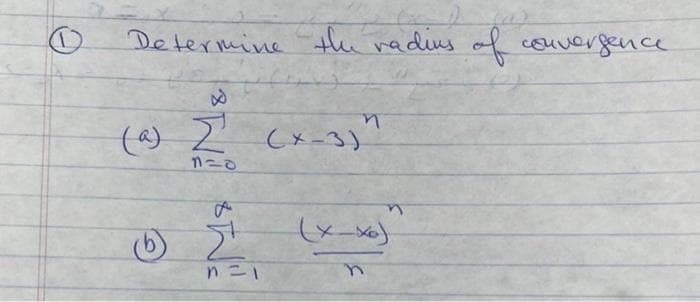 ① Determine the radius of convergence
(a) ∞ Σ n=0 (x-3)^n
(b) ∞ Σ n=1 (x-x₀)^n / n